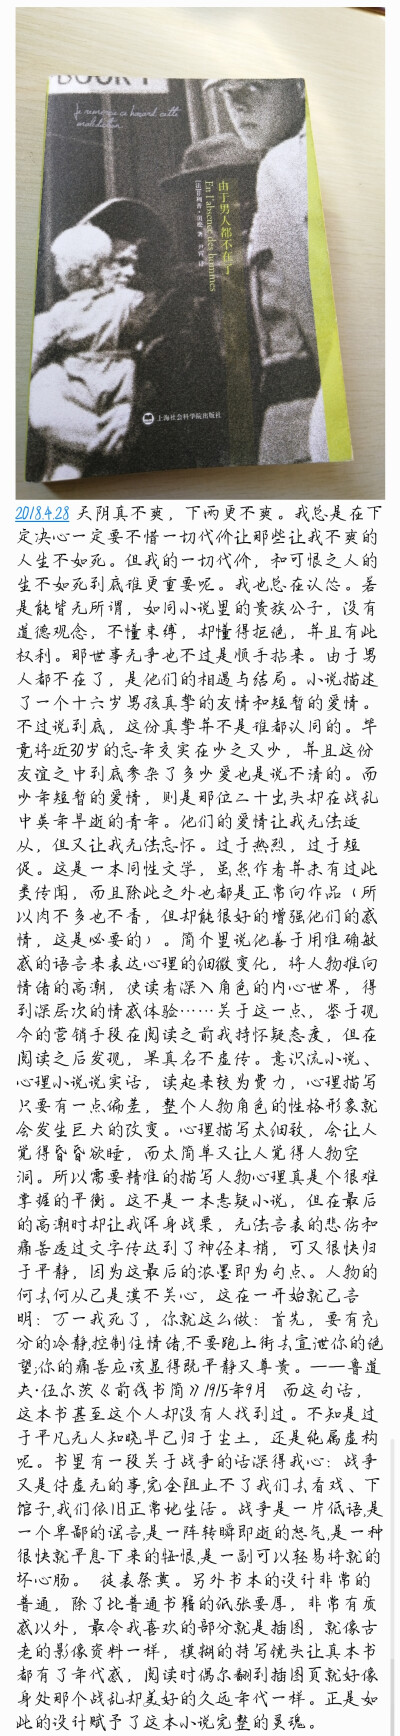 BOOK I
Je renonce ce hasard cette
malédiction
由于男人都不在了
En l'absence des hommes
上海社会科学院出版社
2018.4.28 天阴真不爽，下雨更不爽。我总是在下
定决心一定要不惜一切代价让那些让我不爽的
人生不如死。但我的一切代价，和可恨之人的
生不如死到底谁更重要呢。我也总在认怂。若
是能皆无所谓，如同小说里的贵族公子，没有
道德观念，不懂束缚，却懂得拒绝，并且有此
权利。那世事无争也不过是顺手拈来。由于男
人都不在了，是他们的相遇与结局。小说描述
了一个十六岁男孩真挚的友情和短暂的爱情。
不过说到底，这份真挚并不是谁都认同的。毕
竟将近30岁的忘年交实在少之又少，并且这份
友谊之中到底参杂了多少爱也是说不清的。而
少年短暂的爱情，则是那位二十出头却在战乱
中英年早逝的青年。他们的爱情让我无法适
从，但又让我无法忘怀。过于热烈，过于短
促。这是一本同性文学，虽然作者并未有过此
类传闻，而且除此之外也都是正常向作品（所
以肉不多也不香，但却能很好的增强他们的感
情，这是必要的）。简介里说他善于用准确敏
感的语言来表达心理的细微变化，将人物推向
情绪的高潮，使读者深入角色的内心世界，得
到深层次的情感体验……关于这一点，鉴于现
今的营销手段在阅读之前我持怀疑态度，但在
阅读之后发现，果真名不虚传。意识流小说、
心理小说说实话，读起来较为费力，心理描写
只要有一点偏差，整个人物角色的性格形象就
会发生巨大的改变。心理描写太细致，会让人
觉得昏昏欲睡，而太简单又让人觉得人物空
洞。所以需要精准的描写人物心理真是个很难
掌握的平衡。这不是一本悬疑小说，但在最后
的高潮时却让我浑身战栗，无法言表的悲伤和
痛苦透过文字传达到了神经末梢，可又很快归
于平静，因为这最后的浓墨即为句点。人物的
何去何从已是漠不关心，这在一开始就已言
明：万一我死了，你就这么做：首先，要有充
分的冷静,控制住情绪,不要跑上街去宣泄你的绝
望;你的痛苦应该显得既平静又尊贵。——鲁道
夫·伍尔茨《前线书简》1915年9月 而这句话，
这本书甚至这个人却没有人找到过。不知是过
于平凡无人知晓早已归于尘土，还是纯属虚构
呢。书里有一段关于战争的话深得我心：战争
又是件虚无的事,完全阻止不了我们去看戏、下
馆子,我们依旧正常地生活。战争是一片低语,是
一个卑鄙的谣言,是一阵转瞬即逝的怒气,是一种
很快就平息下来的悔恨,是一副可以轻易将就的
坏心肠。 徒表祭奠。另外书本的设计非常的
普通，除了比普通书籍的纸张要厚，非常有质
感以外，最令我喜欢的部分就是插图，就像古
老的影像资料一样，模糊的特写镜头让真本书
都有了年代感，阅读时偶尔翻到插图页就好像
身处那个战乱却美好的久远年代一样。正是如
此的设计赋予了这本小说完整的灵魂。